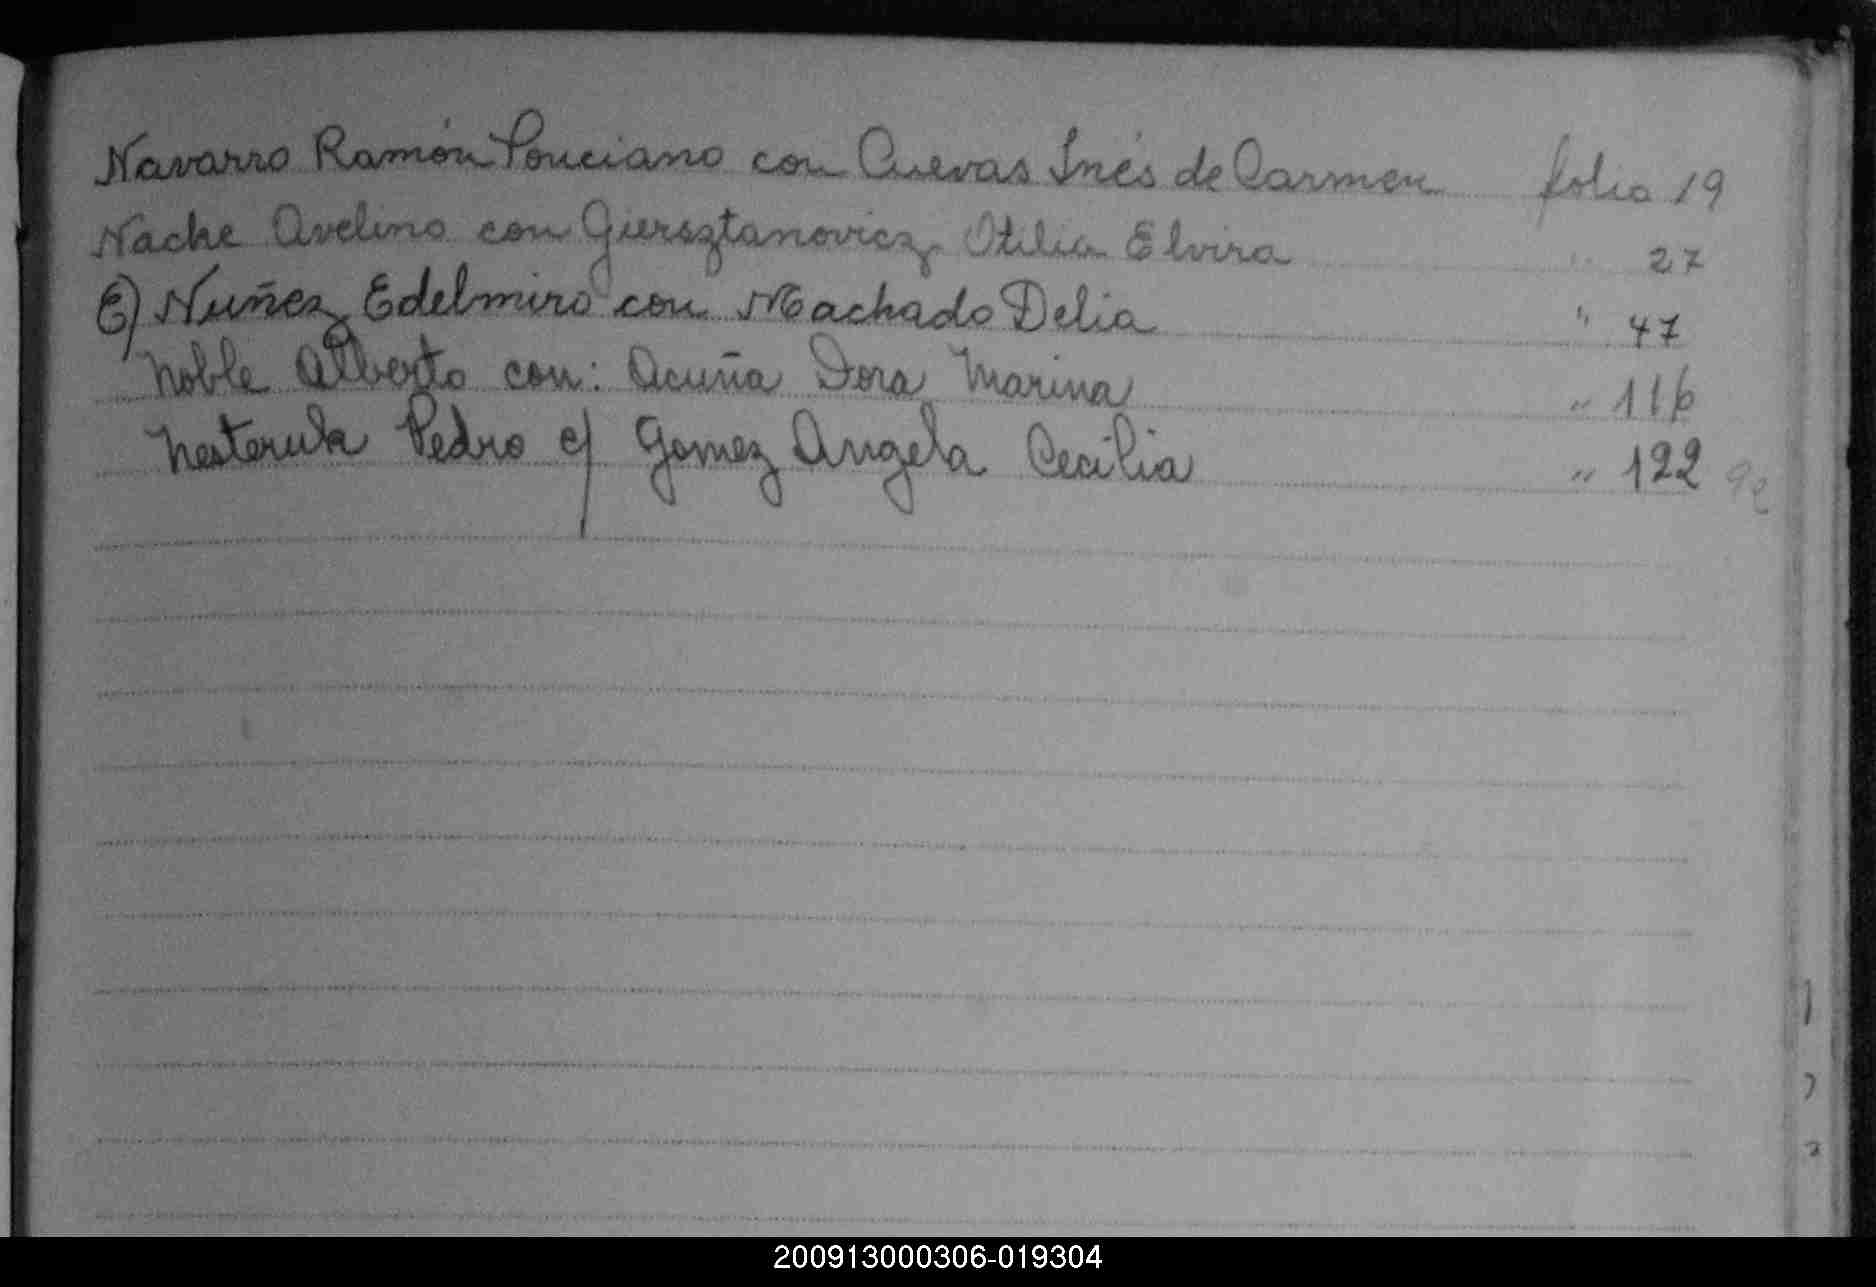 Navarro Ramón Ponciano con Cuevas Inés de Carmen folio 19
Nache Avelino con Giersztanovicz Otilia Elvira " 27
E) Nuñez Edelmiro con Machado Delia " 47
Noble Alberto con: Acuña Dora Marina " 116
Nesteruk Pedro c/ Gomez Angela Cecilia " 122
200913000306-019304